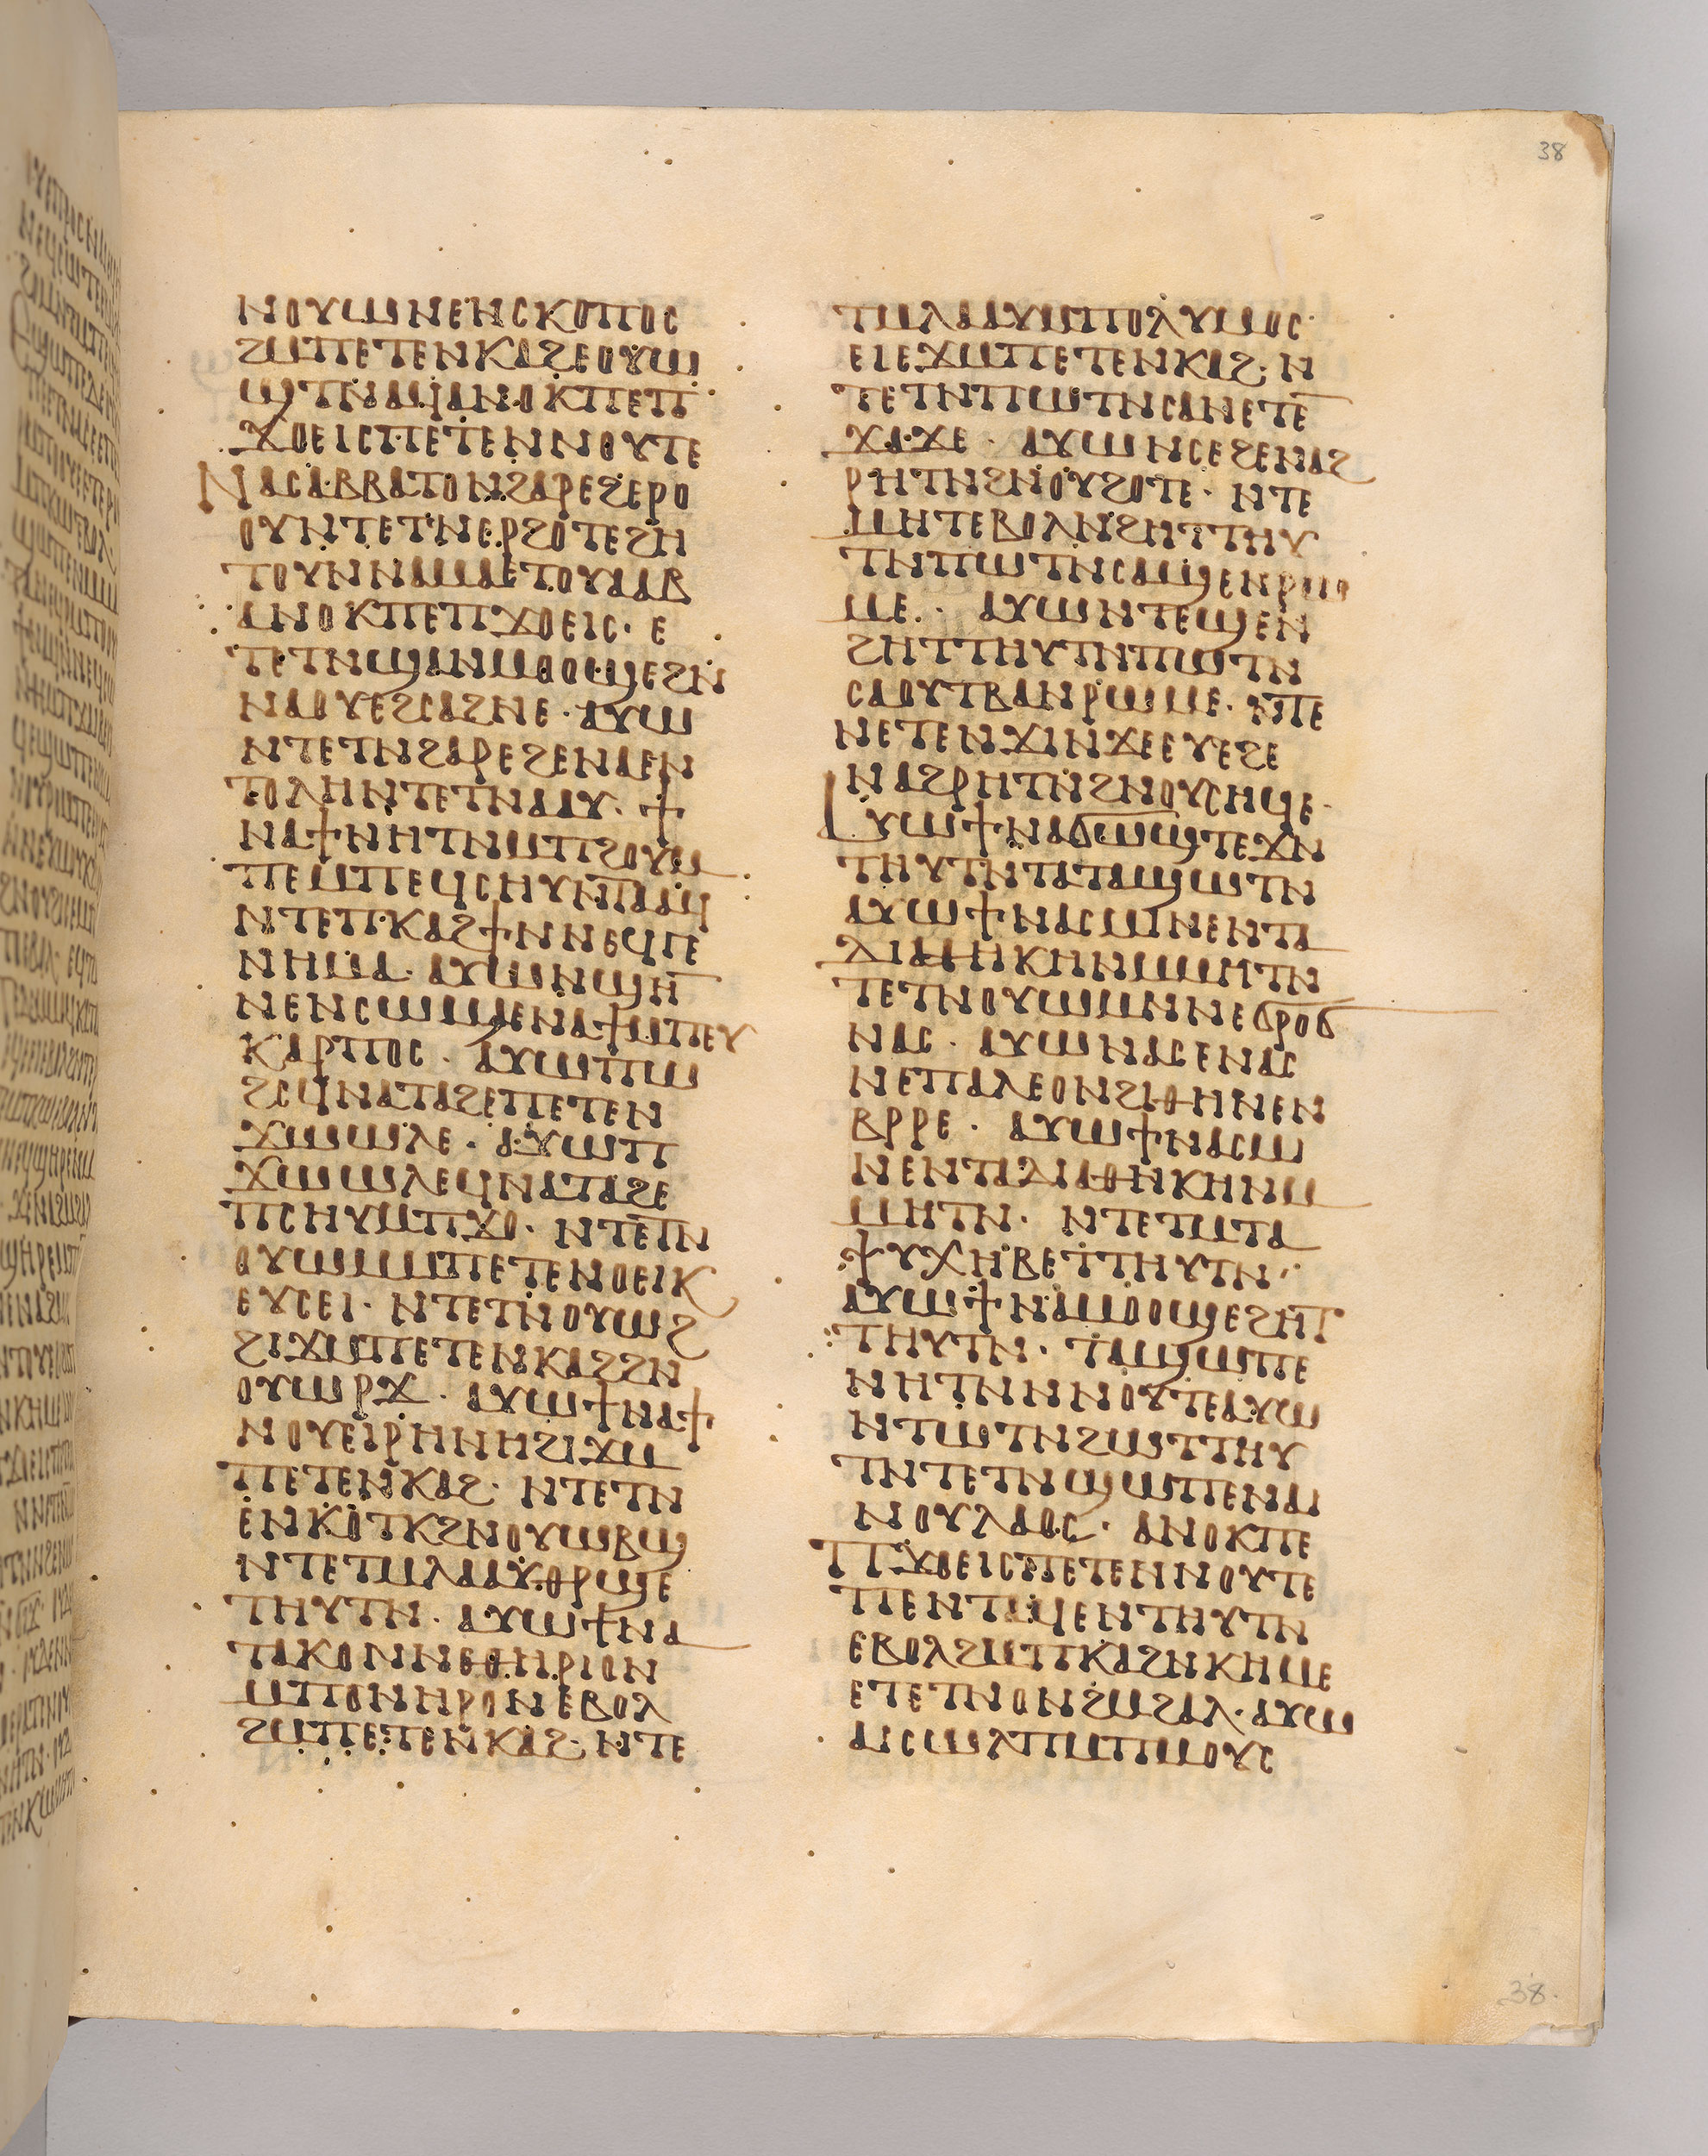 38
ⲛⲟⲩⲱⲛⲉⲛⲥⲕⲟⲡⲟⲥ
ϩⲙⲡⲉⲧⲉⲛⲕⲁϩⲉⲟⲩⲱ
ϣⲧⲛⲁϥ·ⲁⲛⲟⲕⲡⲉⲡ
ϫⲟⲉⲓⲥⲡⲉⲧⲉⲛⲛⲟⲩⲧⲉ
ⲛⲁⲥⲁⲃⲃⲁⲧⲟⲛϩⲁⲣⲉϩⲉⲣⲟ
ⲟⲩⲛⲧⲉⲧⲛⲉⲣϩⲟⲧⲉϩⲏ
ⲧⲟⲩⲛⲛⲁⲙⲁⲉⲧⲟⲩⲁⲁⲃ
ⲁⲛⲟⲕⲡⲉⲡϫⲟⲉⲓⲥ· ⲉ
ⲧⲉⲧⲛϣⲁⲛⲙⲟⲟϣⲉϩⲛ
ⲛⲁⲟⲩⲉϩⲥⲁϩⲛⲉ· ⲁⲩⲱ
ⲛⲧⲉⲧⲛϩⲁⲣⲉϩⲉⲛⲁⲉⲛ
ⲧⲟⲗⲏⲛⲧⲉⲧⲛⲁⲁⲩ· ϯ
ⲛⲁϯⲛⲏⲧⲛⲙⲡϩⲟⲩⲙ
ⲡⲉⲙⲡⲉϥⲥⲏⲩⲛⲡⲁϥ
ⲛⲧⲉⲡ·ⲕⲁϩϯⲛⲛⲉϥⲅⲉ
ⲛⲏⲙⲁ· ⲁⲩⲱⲛϣⲏ
ⲛⲉⲛⲥⲱϣⲉⲛⲁϯⲙⲡⲉⲩ
ⲕⲁⲣⲡⲟⲥ· ⲁⲩⲱⲡⲱ
ϩⲥϥⲛⲁⲧⲁϩⲉⲡⲉⲧⲉⲛ
ϫⲱⲱⲗⲉ· ⲁⲩⲱⲡ
ϫⲱⲱⲗⲉϥⲛⲁⲧⲁϩⲉ
ⲡⲥⲏⲩⲙⲡϫⲟ· ⲛⲧⲉⲧⲛ
ⲟⲩⲱⲙⲙⲡⲉⲧⲉⲛⲟⲉⲓⲕ
ⲉⲩⲥⲉⲓ· ⲛⲧⲉⲧⲛⲟⲩⲱϩ
ϩⲓϫⲙⲡⲉⲧⲉⲛⲕⲁϩϩⲛ
ⲟⲩⲱⲣϫ· ⲁⲩⲱϯⲛⲁϯ
ⲛⲟⲩⲉⲓⲣⲏⲛⲏϩⲓϫⲙ
ⲡⲉⲧⲉⲛⲕⲁϩ· ⲛⲧⲉⲧⲛ
ⲉⲛⲕⲟⲧⲕϩⲛⲟⲩⲱⲃϣ
ⲛⲧⲉⲧⲙⲗⲁⲁⲩⲑⲣϣⲉ
ⲧⲏⲩⲧⲛ· ⲁⲩⲱϯⲛⲁ
ⲧⲁⲕⲟⲛⲛⲉⲑⲏⲣⲓⲟⲛ
ⲙⲡⲟⲛⲏⲣⲟⲛⲉⲃⲟⲗ
ϩⲙⲡⲉⲧⲉⲛⲕⲁϩ· ⲛⲧⲉ
ⲧⲙⲗⲁⲁⲩⲙⲡⲟⲗⲩⲙⲟⲥ·
ⲉⲓⲉϫⲙⲡⲉⲧⲉⲛⲕⲁϩ· ⲛ
ⲧⲉⲧⲛⲡⲱⲧⲛⲥⲁⲛⲉⲧⲉ
ϫⲁϫⲉ· ⲁⲩⲱⲛⲥⲉϩⲉⲛⲁϩ
ⲣⲏⲧⲛϩⲛⲟⲩϩⲟⲧⲉ· ⲛⲧⲉ
ⲙⲏⲧⲉⲃⲟⲗⲛϩⲏⲧⲧⲏⲩ
ⲧⲛⲡⲱⲧⲛⲥⲁϣⲉⲛⲣⲱ
ⲙⲉ· ⲁⲩⲱⲛⲧⲉϣⲉⲛ
ϩⲏⲧⲧⲏⲩⲧⲛⲡⲱⲧⲛ
ⲥⲁⲟⲩⲧⲃⲁⲛⲣⲱⲙⲉ· ⲛⲧⲉ
ⲛⲉⲧⲉⲛϫⲓⲛϫⲉⲉⲩⲉϩⲉ
ⲛⲁϩⲣⲏⲧⲛϩⲛⲟⲩⲥⲏϥⲉ·
ⲁⲩⲱϯⲛⲁϭⲱϣⲧⲉϫⲛ
ⲧⲏⲩⲧⲛⲧⲁⲧⲁϣⲱⲧⲛ
ⲁⲩⲱϯⲛⲁⲥⲙⲛⲉⲛⲧⲁ
ⲇⲓⲁⲑⲏⲕⲏⲛⲙⲙⲏⲧⲛ
ⲧⲉⲧⲛⲟⲩⲱⲙⲛⲛⲉϭⲣⲟϭ
ⲛⲁⲥ· ⲁⲩⲱⲛⲁⲥⲉⲛⲁⲥ
ⲛⲉⲡⲁⲗⲉⲟⲛϩⲓⲑⲏⲛⲉⲛ
ⲃⲣⲣⲉ· ⲁⲩⲱϯⲛⲁⲥⲙ
ⲛⲉⲛⲧⲁⲇⲓⲁⲑⲏⲕⲏⲛⲙ
ⲙⲏⲧⲛ· ⲛⲧⲉⲧⲙⲧⲁ
ⲯⲩⲭⲏⲃⲉⲧⲧⲏⲩⲧⲛ·
ⲁⲩⲱϯⲛⲁⲙⲟⲟϣⲉϩⲏⲧ
ⲧⲏⲩⲧⲛ· ⲧⲁϣⲱⲡⲉ
ⲛⲏⲧⲛⲛⲛⲟⲩⲧⲉⲁⲩⲱ
ⲛⲧⲱⲧⲛϩⲱⲧⲧⲏⲩ
ⲧⲛⲧⲉⲧⲛϣⲱⲡⲉⲛⲁⲓ
ⲛⲟⲩⲗⲁⲟⲥ· ⲁⲛⲟⲕⲡⲉ
ⲡϫⲟⲉⲓⲥⲡⲉⲧⲉⲛⲛⲟⲩⲧⲉ
ⲡⲉⲛⲧⲁϥⲉⲛⲧⲏⲩⲧⲛ
ⲉⲃⲟⲗϩⲙⲡⲕⲁϩⲛⲕⲏⲙⲉ
ⲉⲧⲉⲧⲛⲟⲛϩⲙϩⲁⲗ· ⲁⲩⲱ
ⲁⲓⲥⲱⲗⲡⲙⲡⲙⲟⲩⲥ
38·